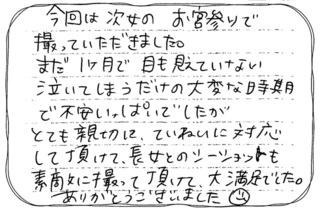 今回は次女のお宮参りで
撮っていただきました。
まだ1ヶ月で目も見えていない
泣いてしまうだけの大変な時期
で不安いっぱいでしたが
とても親切に、ていねいに対応
して頂けて、長女とのシーションも
素敵に撮って頂けて、大満足でした。
ありがとうございました